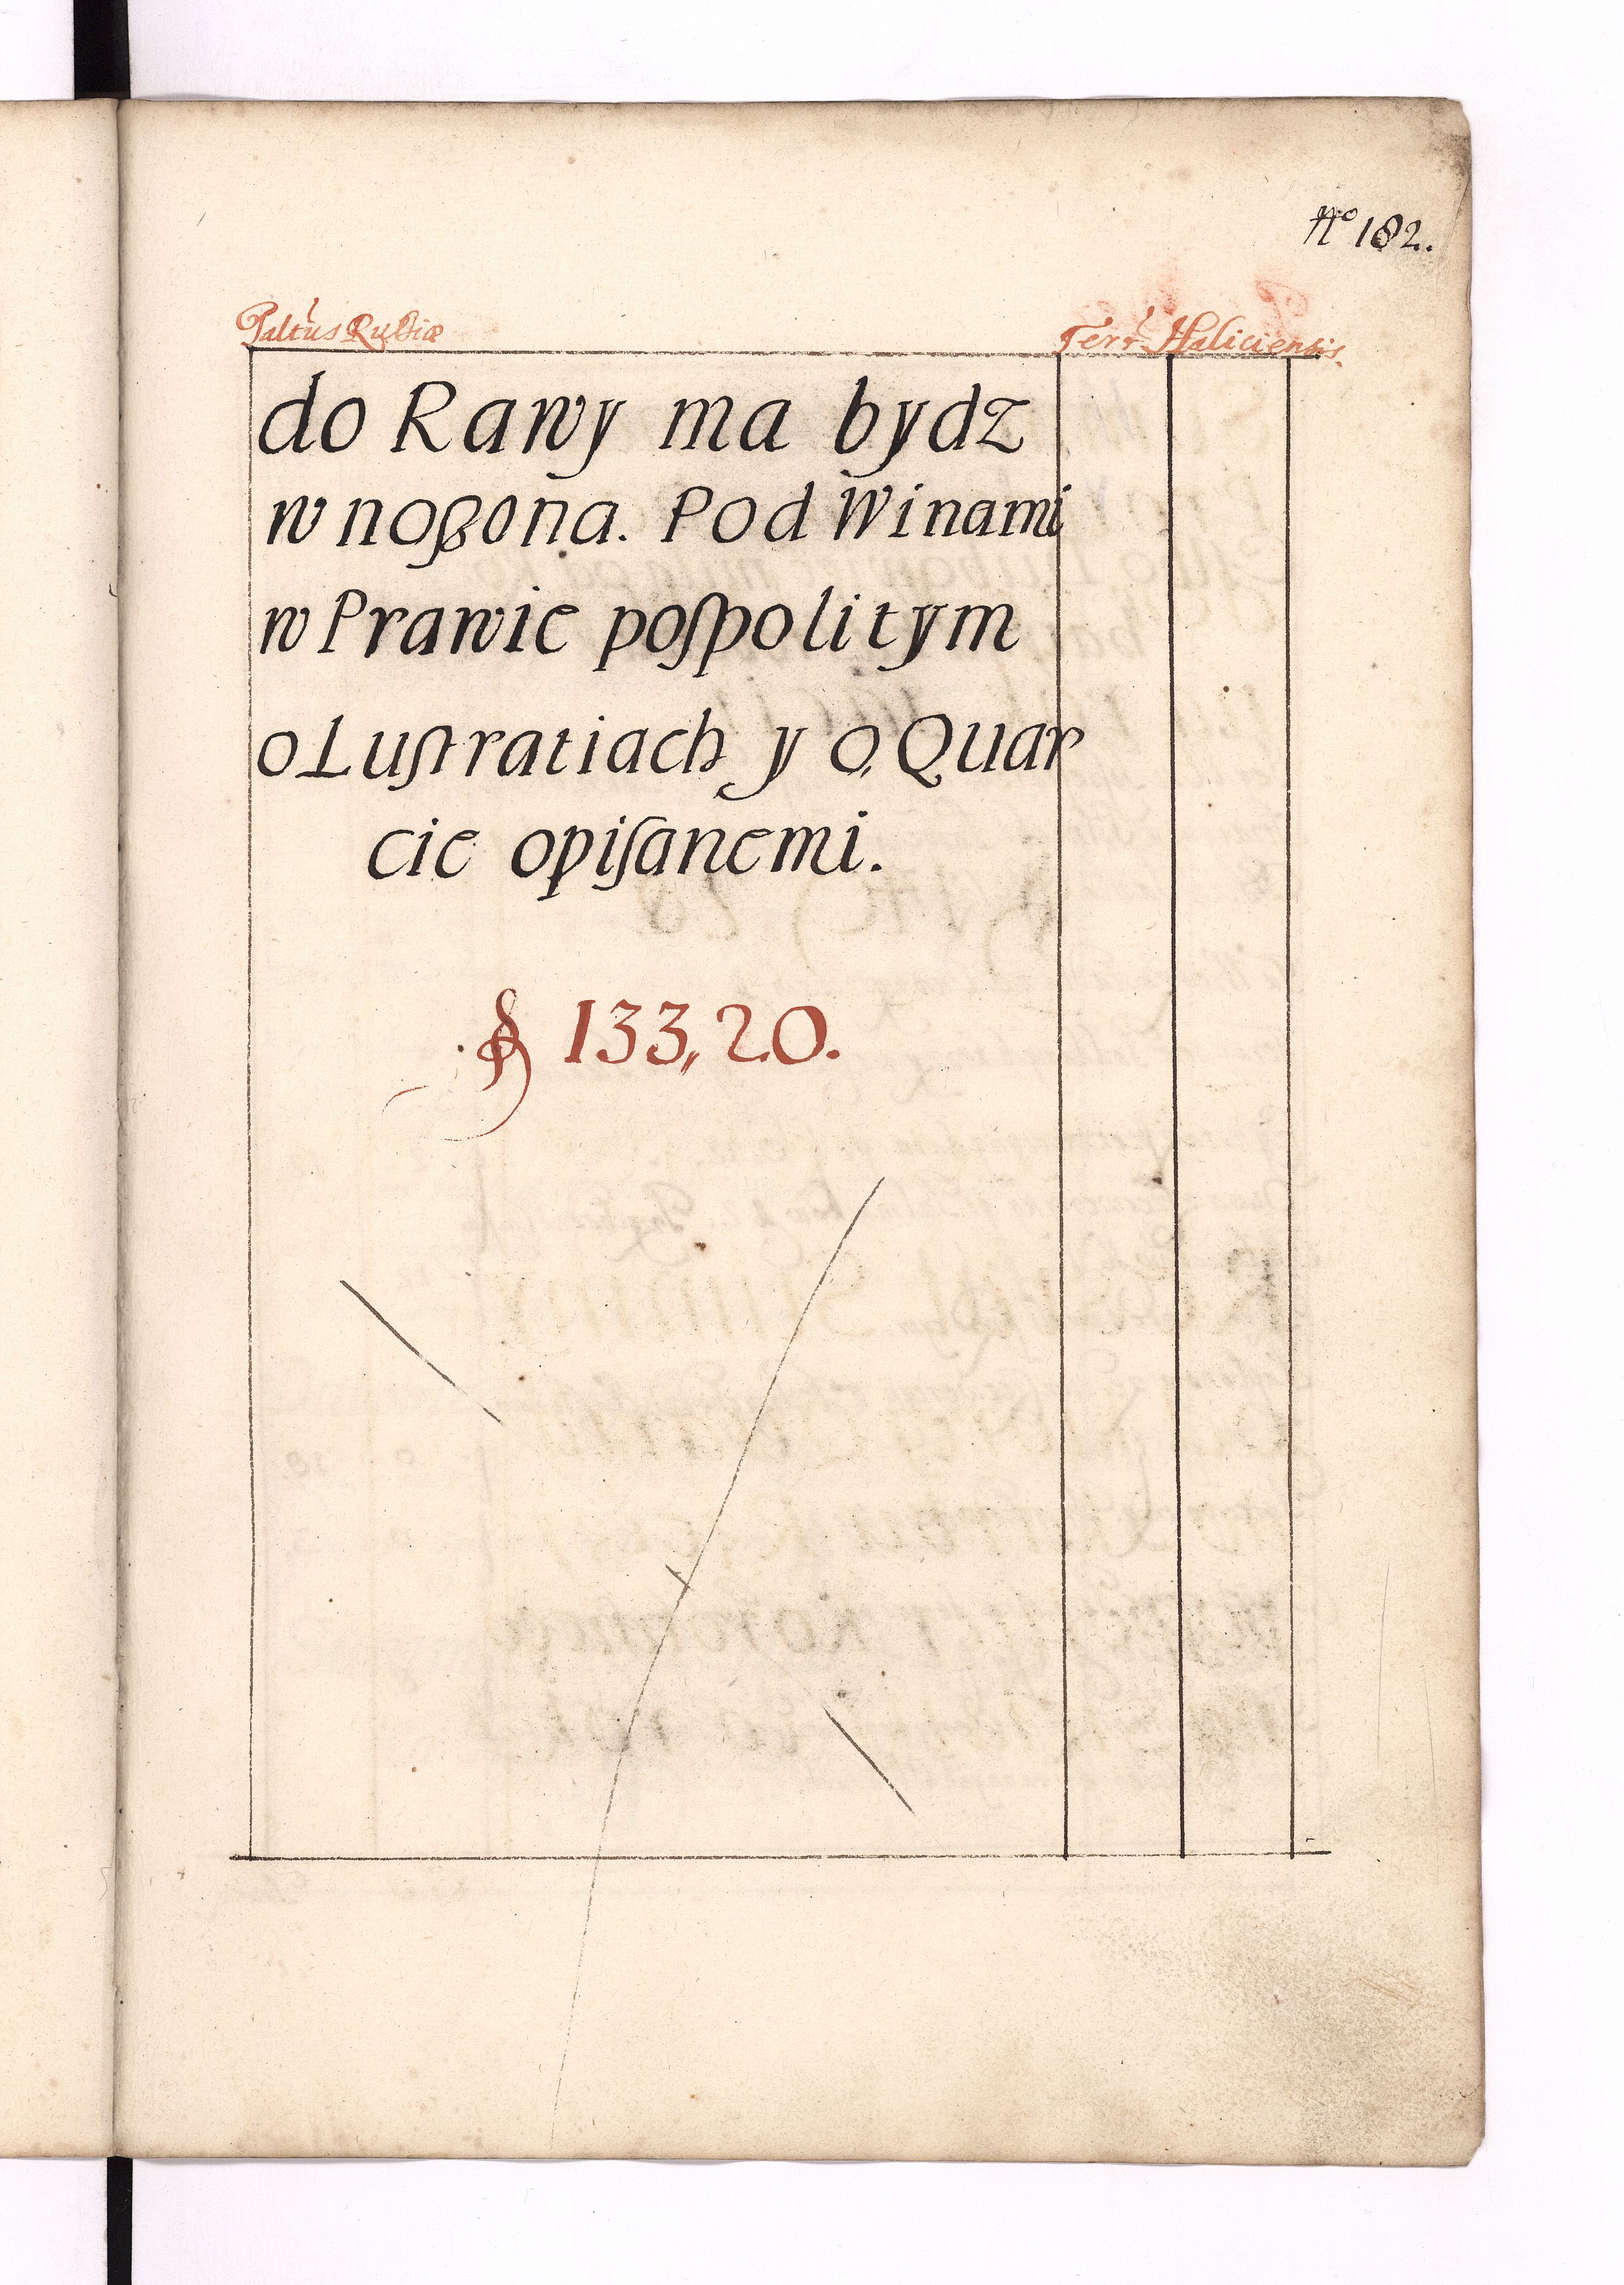 No 182.
Paltus Rußiæ
Terr Haliciensis.
do Rawy ma bydz
w noßona. Pod Winami
w Prawie poſpolitym
o Luſtratiach y o, Quar
cie opiſanemi.
133,, 20.